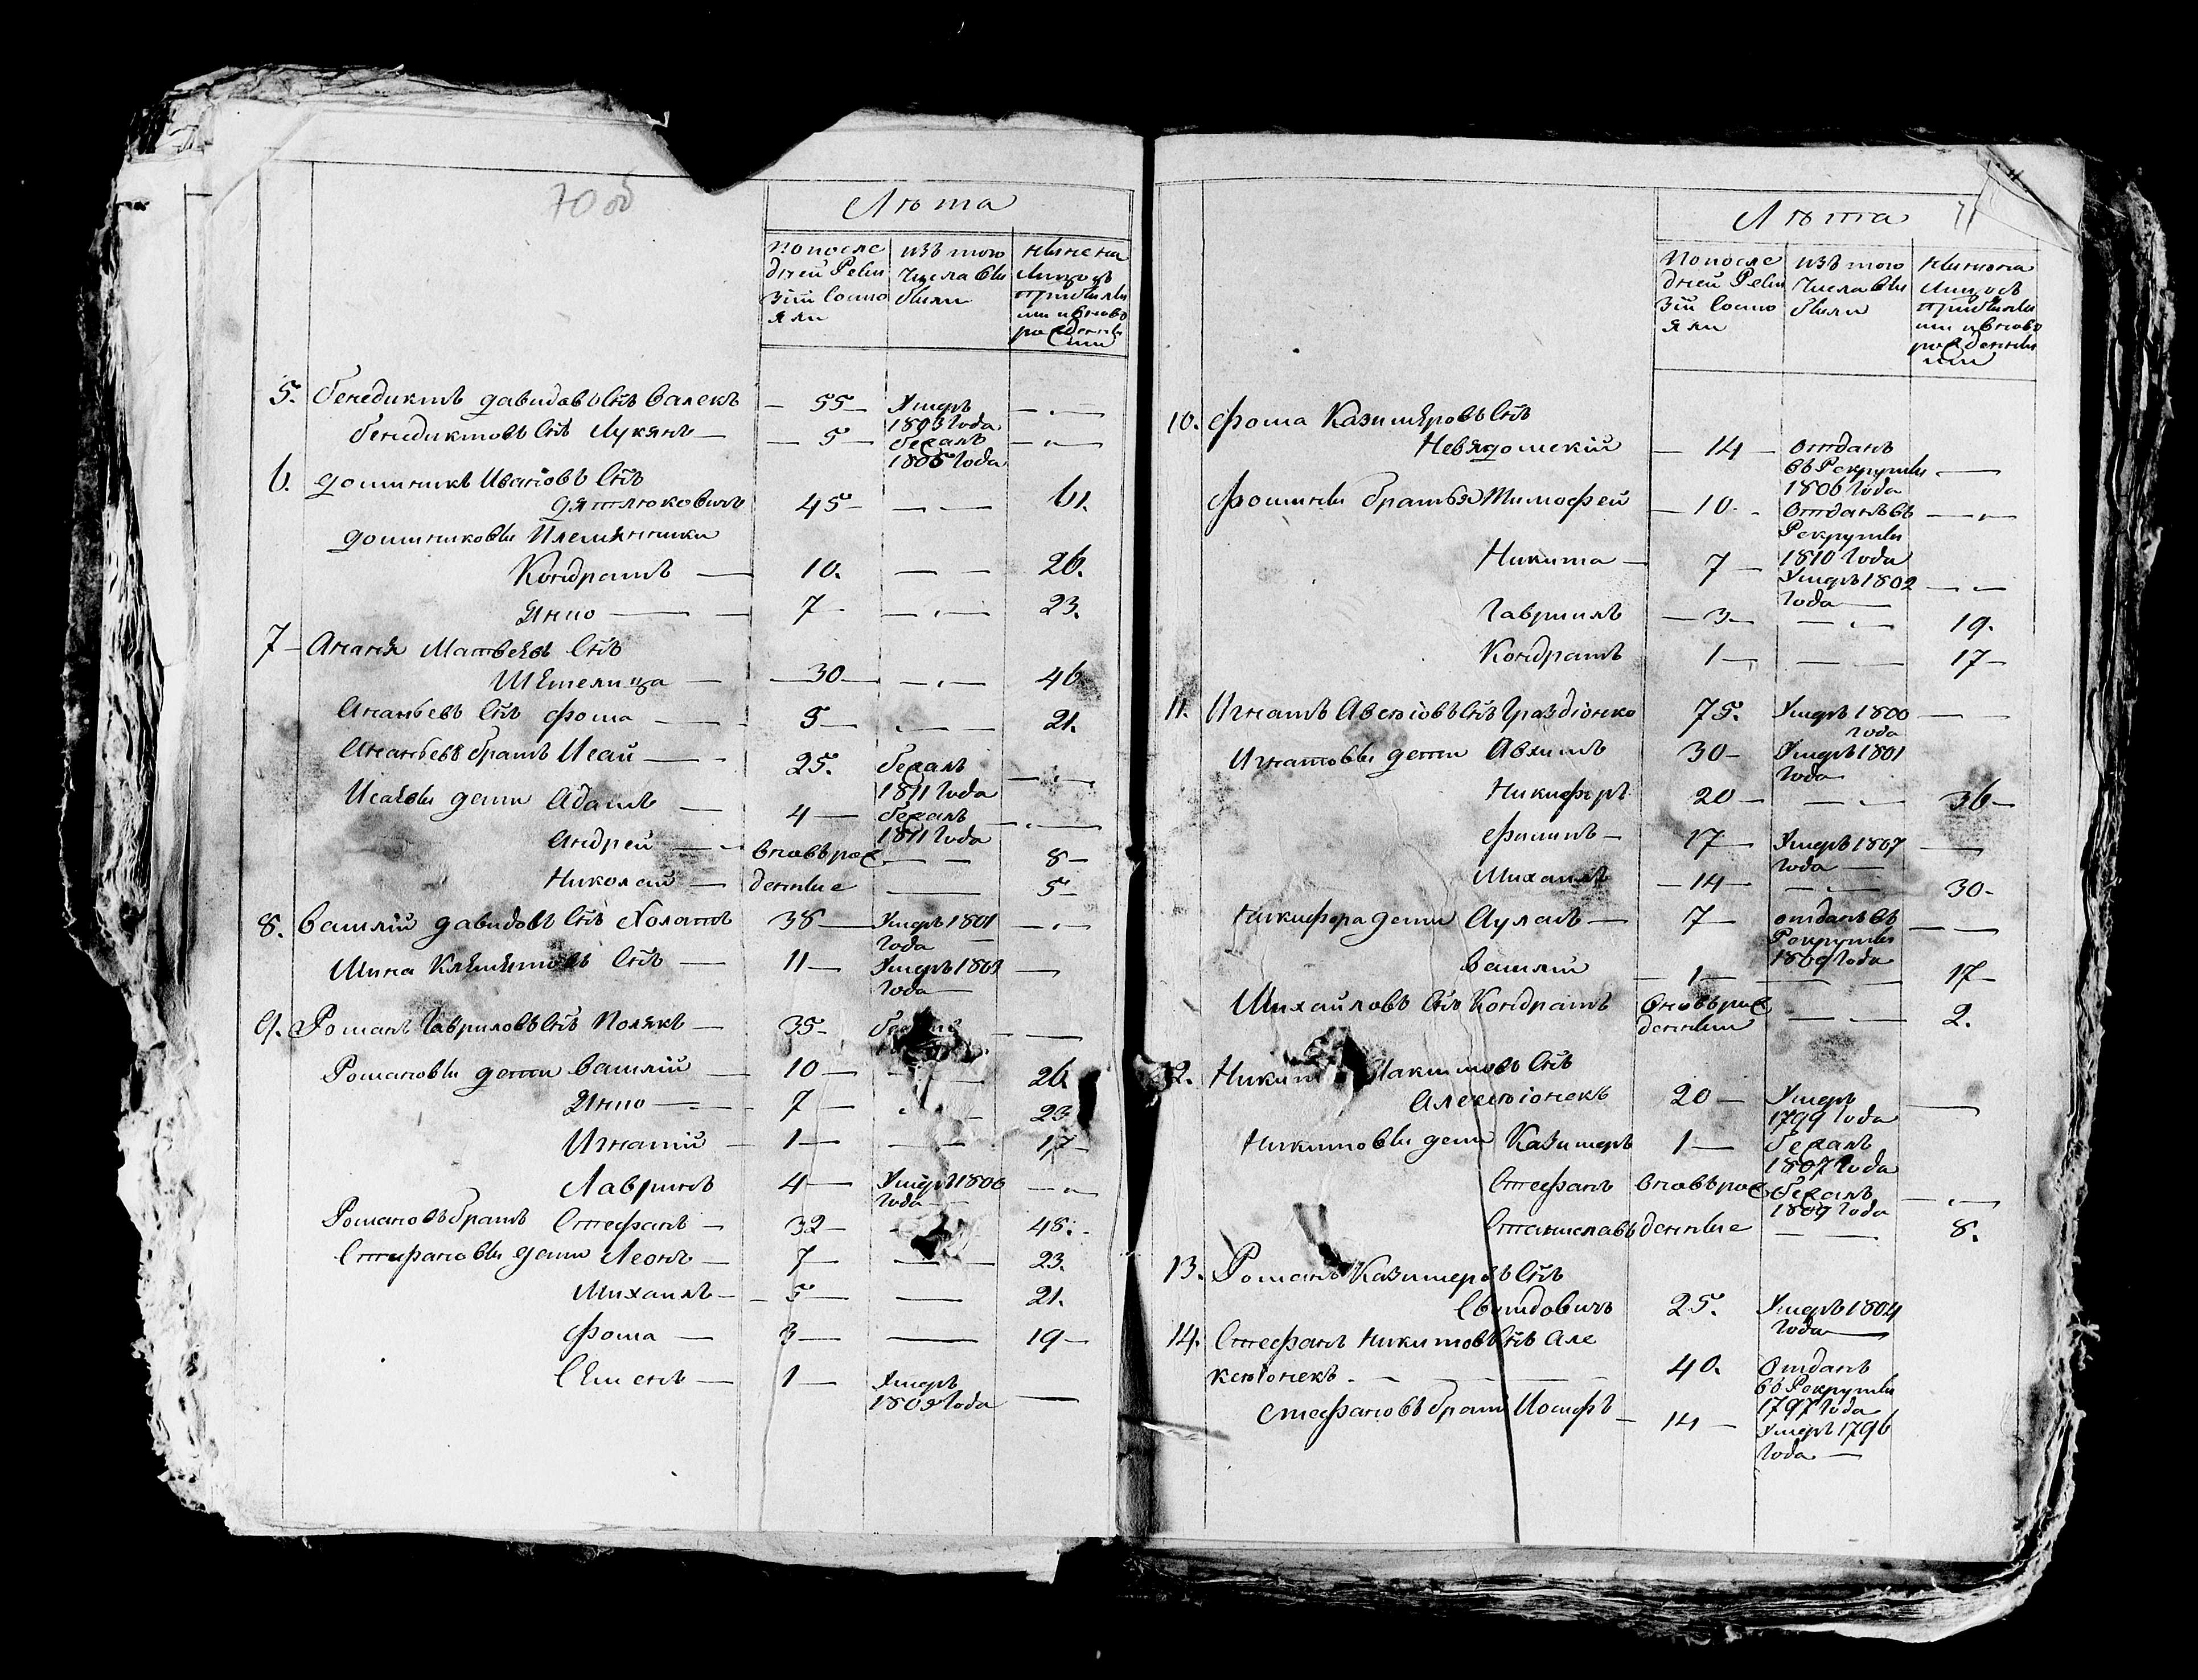 70 об
Лѣта
По после
дней Реви
зiи состо
яли
изъ того
числа вы
были
ныне на
лицо съ
прибылы
ми и вново
рожденны
ми
5. Бенедиктъ давидовъ Снъ Валекъ — 55 — Умеръ 1803 года
Бенедиктовъ Снъ Лукянъ — 5 — бежалъ
1805 года
6. доминикъ Ивановъ Снъ
дятлюковичъ 45 — — 61.
доминиковы Племянники
Кондратъ — 10. — — 26.
Янко — 7 — — 23.
7 — Ананя Матвеевъ Снъ
Шемелица — 30 — — 46
Ананьевъ Снъ фома — 5 — — 21.
Ананьевъ братъ Исай — 25. бежалъ
1811 года —
Исаевы дети Адамъ — 4 — бежалъ
1811 года —
Андрей — вновь рож — — 8 —
Николай — денные — 5 —
8. Василiй давидовъ Снъ Холатъ 38 — Умеръ 1801
года —
Мина Клеметовъ Снъ — 11 — Умеръ 1801
года —
9. Романъ Гавриловъ Снъ Полякъ — 35 —
Романовы дети Василiй — 10 — — 26
Янко — 7 — — 23
Игнатiй — 1 — — 17 —
Лавринъ 4 — Умеръ 1800
года —
Романовъ братъ Стефанъ — 32 — 48.
Стефановы дети Леонъ — 7 — — 23.
Михаилъ — 5 — — 21.
фома — 3 — — 19 —
Семенъ — 1 — Умеръ
1805 года —
11
71
Лѣта
По после
дней Реви
зiи состо
яли
изъ того
числа вы
были
ныне на
лицо съ
прибылы
ми и вново
рожденны
ми
10. Фома Казимеровъ Снъ
Невядомскiй — 14 — отданъ
въ Рекруты
1806 года —
Фомины братья Тимофей — 10 — Отданъ въ
Рекруты
1810 года —
Никита — 7 — Умеръ 1802
года —
Гаврiилъ — 3 — — 19.
Кондратъ 1 — — 17 —
11. Игнатъ Авсюiовъ Снъ Граздiонко 75. Умеръ 1800
года —
Игнатовы дети Авхимъ 30 — Умеръ 1801
года
Никифоръ 20 — — 36 —
Филипъ — 17 — Умеръ 1807
года —
Михаилъ — 14 — — 30 —
Никифора дети Ауласъ — 7 — отданъ въ
Рекруты
1809 года —
Василiй — 1 — — 17 —
Михайловъ Снъ Кондратъ вновь рож
денныи — 2.
12. Никит Макимовъ Снъ
Алексюiонекъ 20 — Умеръ
1799 года —
Никитовы дети Казимеръ 1 — бежалъ
1807 года
Стефанъ вновь рож бежалъ
1809 года —
Станиславъ денные — 8.
13. Романъ Казимеровъ Снъ
Свитдовичъ 25. Умеръ 1804
года —
14. Стефанъ Никитовъ Снъ Але
ксюiонекъ — 40. Отданъ
во Рекруты
1797 года
Стефановъ братъ Иосифъ — 14 — Умеръ 1796
года —